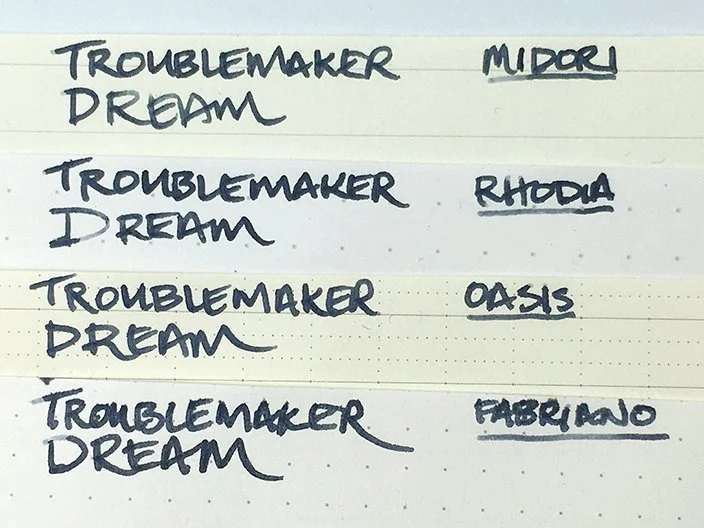 TROUBLEMAKER MIDORI
DREAM
TROUBLEMAKER RHODIA
DREAM
TROUBLEMAKER OASIS
DREAM
TROUBLEMAKER FABRIANO
DREAM